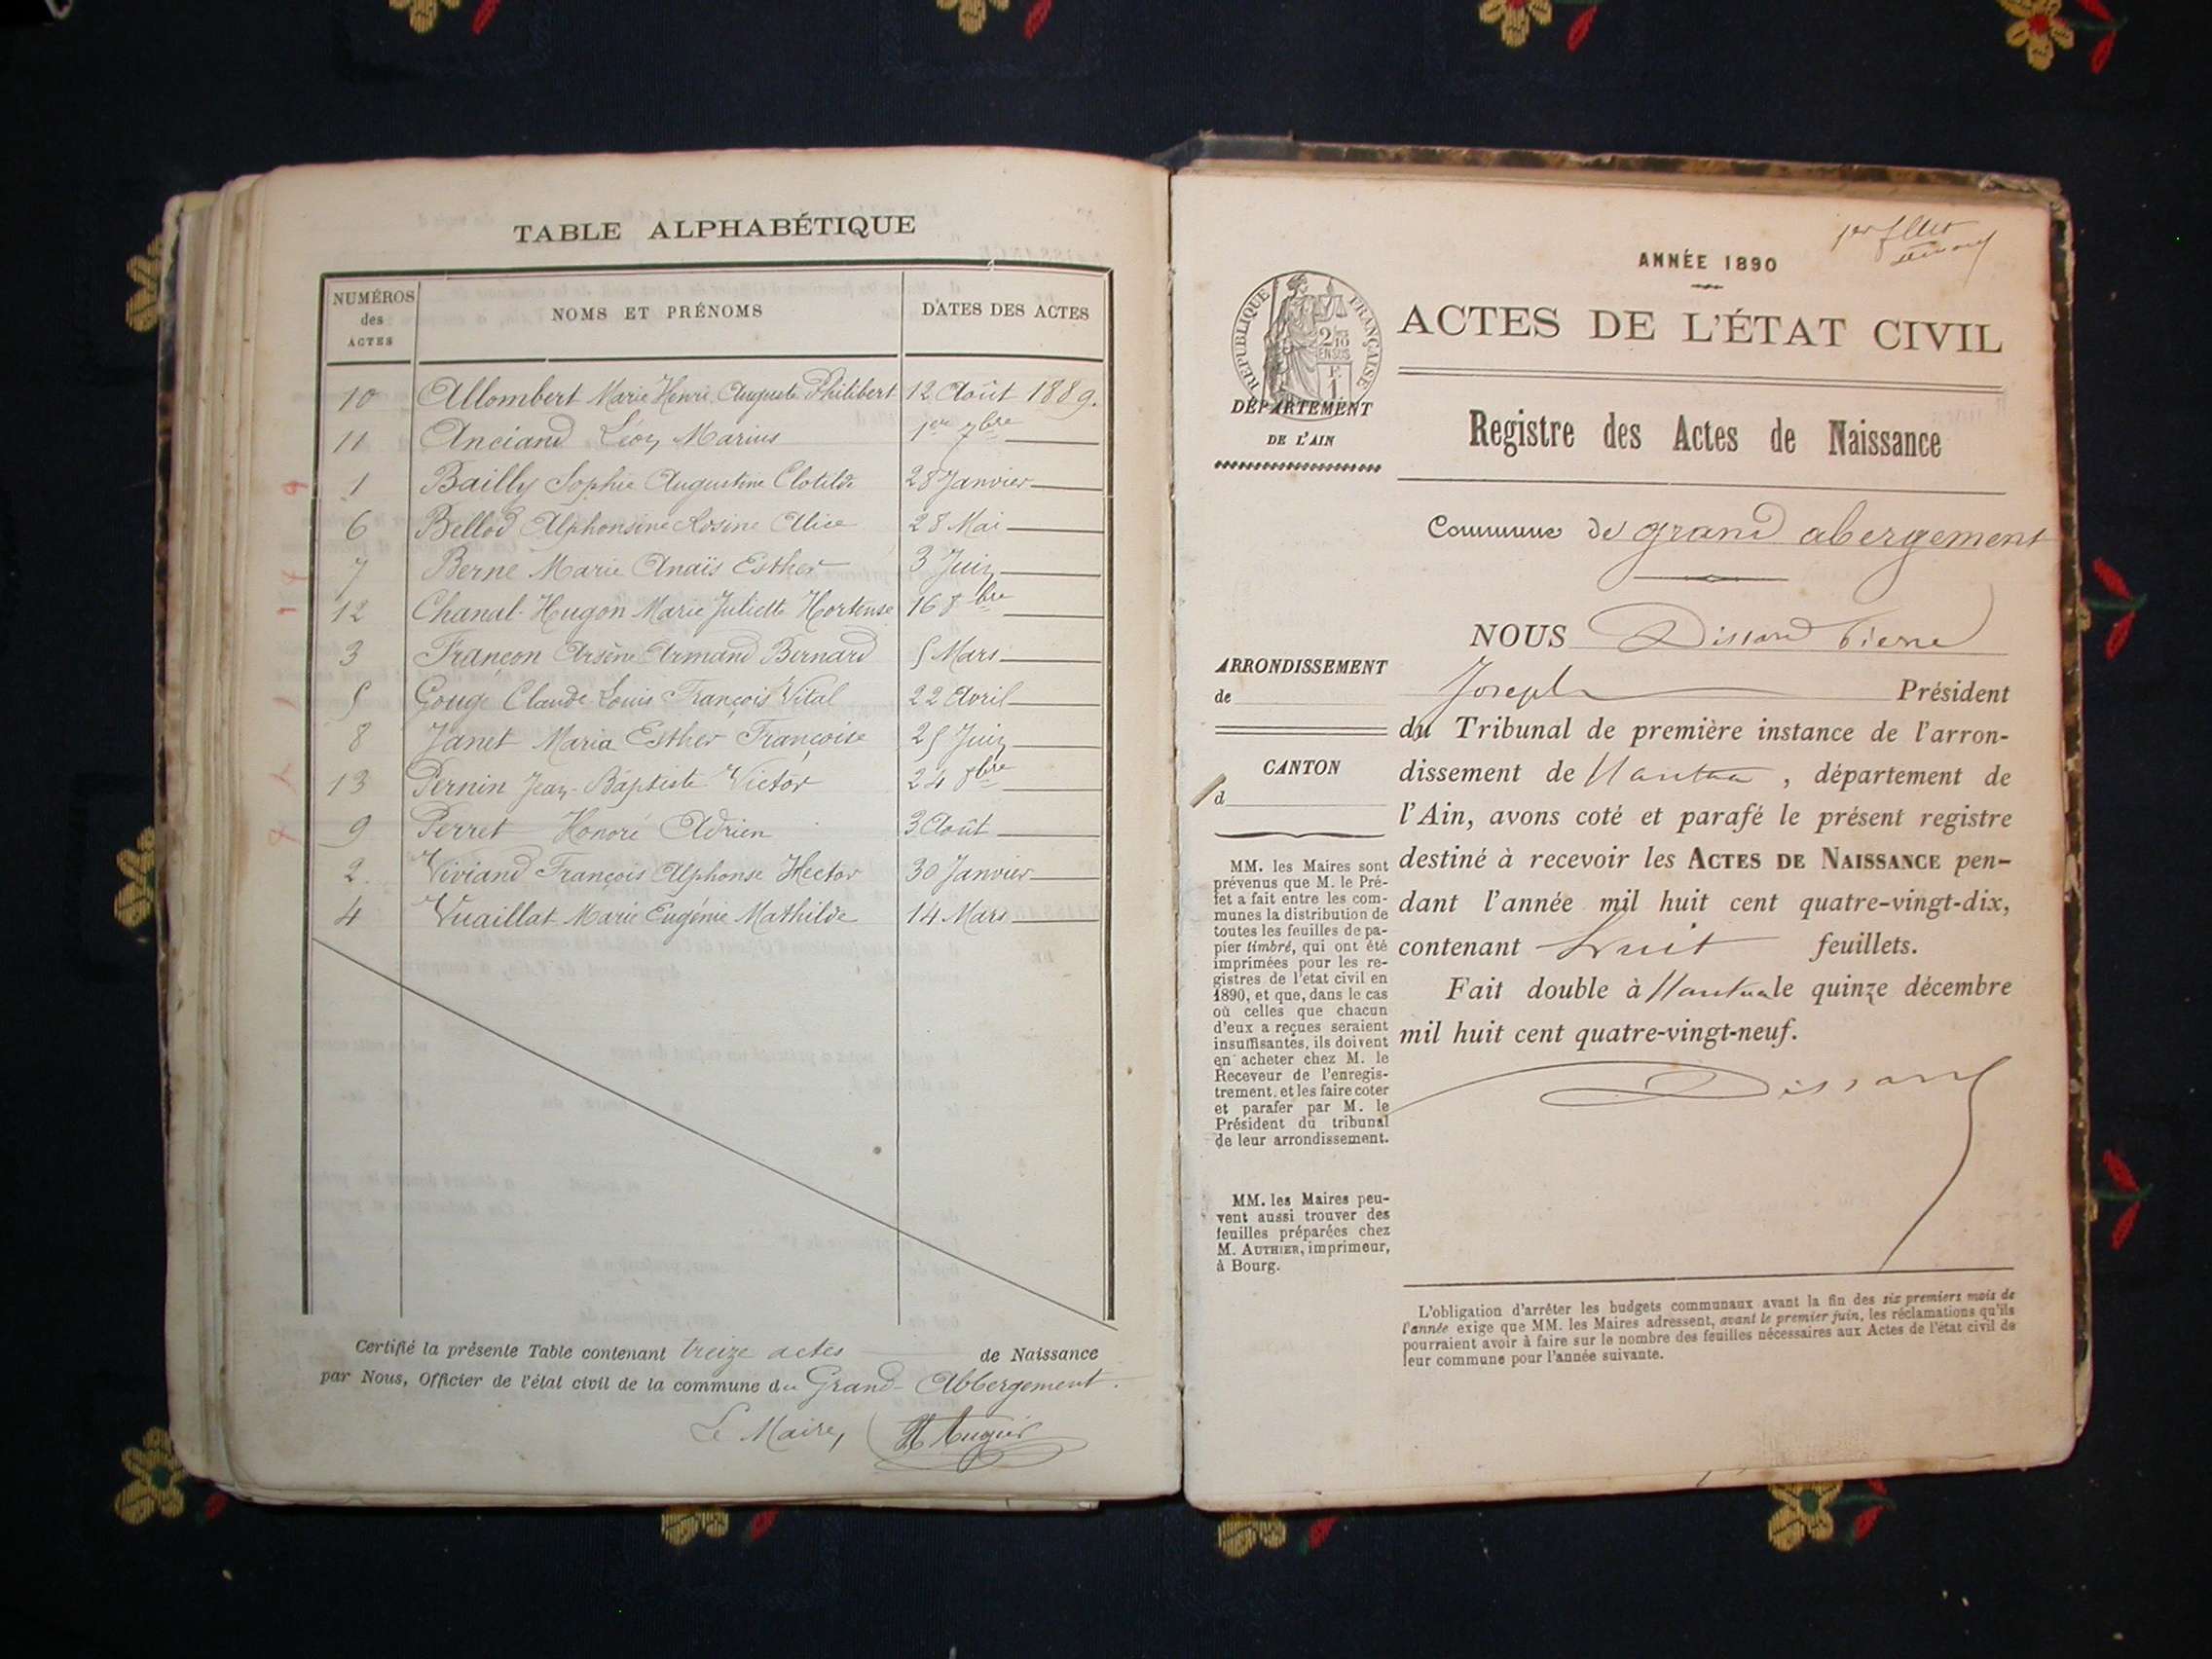 TABLE ALPHABÉTIQUE
NUMÉROS des ACTES NOMS ET PRÉNOMS DATES DES ACTES
10 Allombert Marie Henri Auguste Philibert 12 Août 1889.
11 Anciand Léon Marius 1er 7bre
1 Bailly Sophie Augustine Clotilde 28 Janvier
6 Bellod Alphonsine Rosine Alice 28 Mai
7 Berne Marie Anaïs Esther 3 Juin
12 Chanal-Hugon Marie Juliette Hortense 16 8bre
3 Françon Arsène Armand Bernard 5 Mars
5 Gouge Claude Louis François Vital 22 Avril
8 Janet Maria Esther Françoise 25 Juin
13 Pernin Jean-Baptiste Victor 24 8bre
9 Perret Honoré Adrien 3 Août
2 Viviand François Alphonse Hector 30 Janvier
4 Vuaillat Marie Eugénie Mathilde 14 Mars
Certifié la présente Table contenant treize actes de Naissance
par Nous, Officier de l'état civil de la commune du Grand-Abbergement.
Le Maire,
ANNÉE 1890
RÉPUBLIQUE FRANÇAISE
ACTES DE L'ÉTAT CIVIL
DÉPARTEMENT
DE L'AIN
Registre des Actes de Naissance
Commune de grand abergement
NOUS Dissard Pierre
Joseph Président
du Tribunal de première instance de l'arron-
dissement de Nantua, département de
l'Ain, avons coté et parafé le présent registre
destiné à recevoir les ACTES DE NAISSANCE pen-
dant l'année mil huit cent quatre-vingt-dix,
contenant huit feuillets.
Fait double à Nantua le quinze décembre
mil huit cent quatre-vingt-neuf.
Dissard
ARRONDISSEMENT
de
CANTON
d
MM. les Maires sont
prévenus que M. le Pré-
fet a fait entre les com-
munes la distribution de
toutes les feuilles de pa-
pier timbré, qui ont été
imprimées pour les re-
gistres de l'état civil en
1890, et que, dans le cas
où celles que chacun
d'eux a reçues seraient
insuffisantes, ils doivent
en acheter chez M. le
Receveur de l'enregis-
trement, et les faire coter
et parafer par M. le
Président du tribunal
de leur arrondissement.
MM. les Maires peu-
vent aussi trouver des
feuilles préparées chez
M. AUTHIER, imprimeur,
à Bourg.
L'obligation d'arrêter les budgets communaux avant la fin des six premiers mois de
l'année exige que MM. les Maires adressent, avant le premier juin, les réclamations qu'ils
pourraient avoir à faire sur le nombre des feuilles nécessaires aux Actes de l'état civil de
leur commune pour l'année suivante.